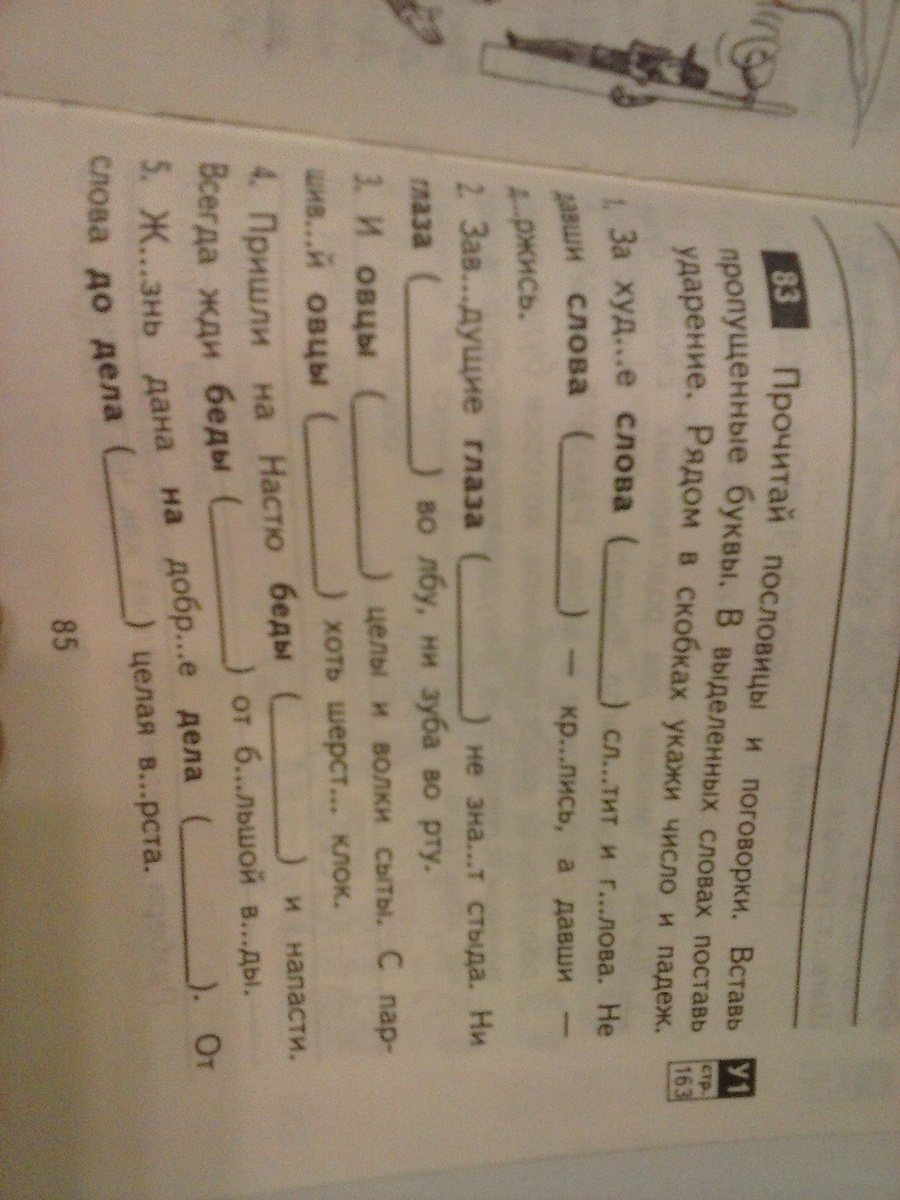 83 Прочитай пословицы и поговорки. Вставь
пропущенные буквы. В выделенных словах поставь
ударение. Рядом в скобках укажи число и падеж.
У1
стр.
163
1. За худ...е слова (________) сл...тит и г...лова. Не
давши слова (________) — кр...пись, а давши —
д...ржись.
2. Зав...дущие глаза (________) не зна...т стыда. Ни
глаза (________) во лбу, ни зуба во рту.
3. И овцы (________) целы и волки сыты. С пар-
шив...й овцы (________) хоть шерст... клок.
4. Пришли на Настю беды (________) и напасти.
Всегда жди беды (________) от б...льшой в...ды.
5. Ж...знь дана на добр...е дела (________). От
слова до дела (________) целая в...рста.
85